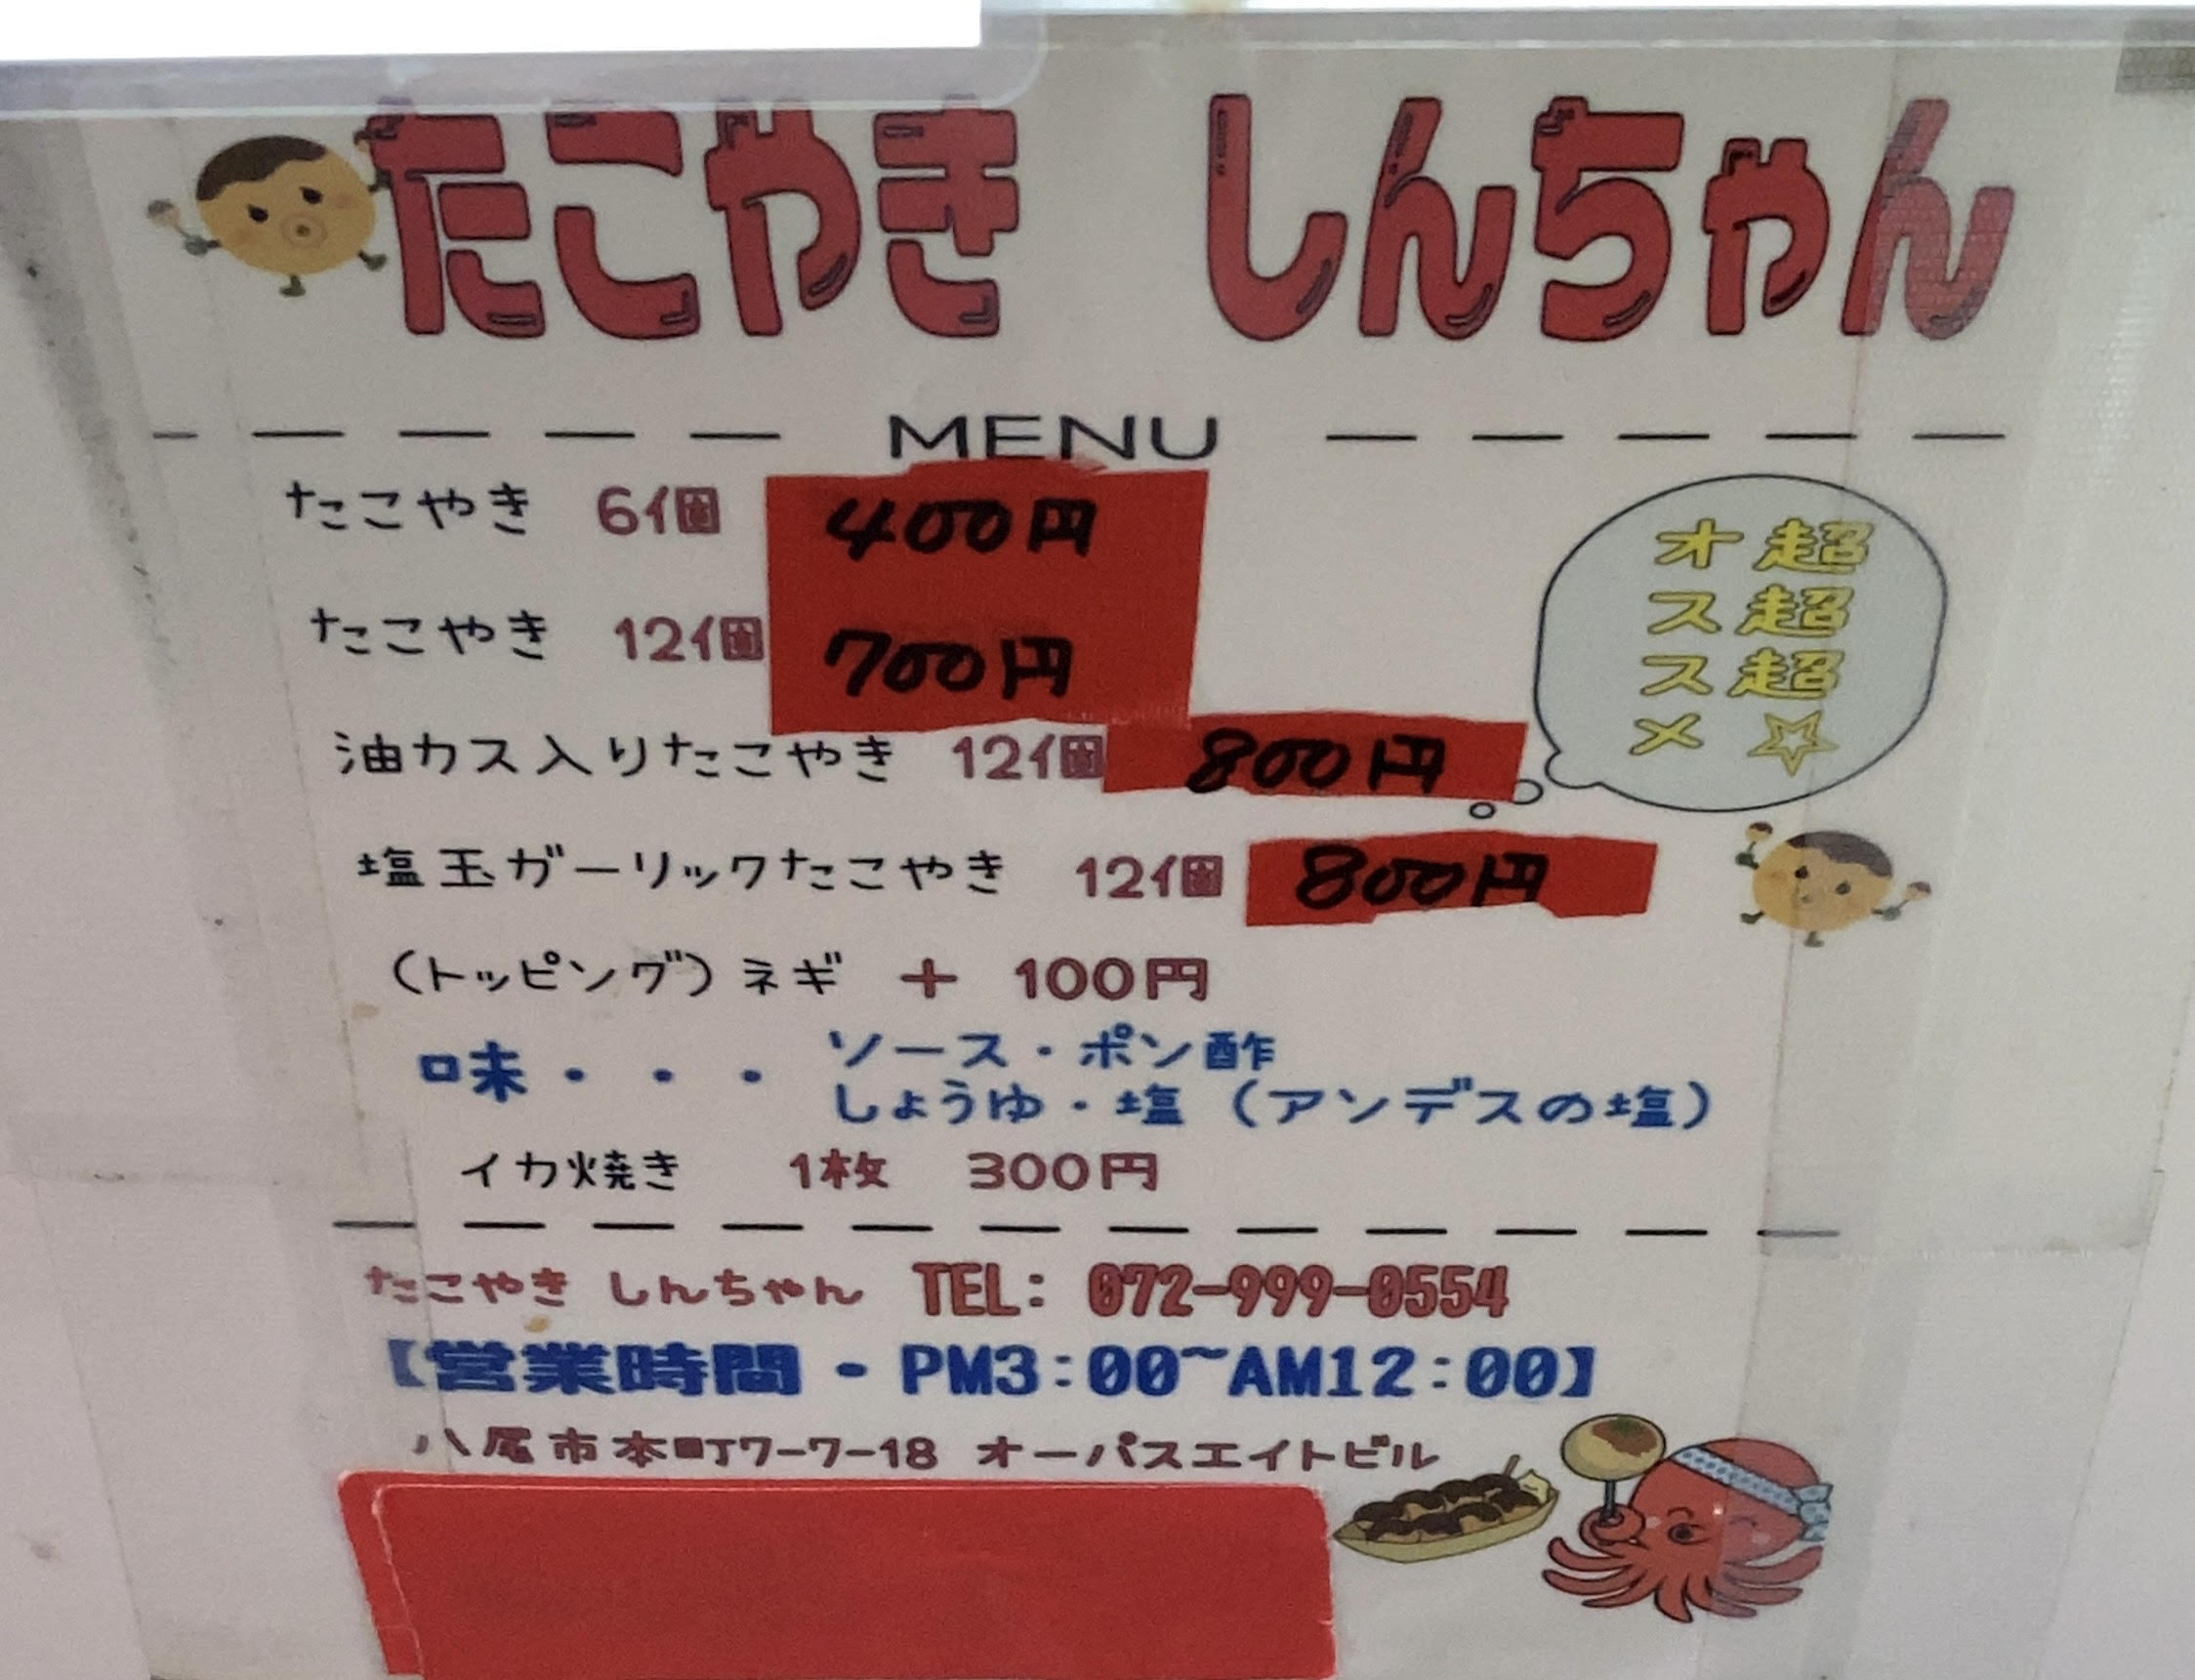 たこやき しんちゃん
MENU
たこやき 6個 400円
たこやき 12個 700円
油カス入りたこやき 12個 800円
超超超☆
オススメ
塩玉ガーリックたこやき 12個 800円
(トッピング)ネギ + 100円
味・・・ ソース・ポン酢
しょうゆ・塩(アンデスの塩)
イカ焼き 1枚 300円
たこやき しんちゃん TEL: 072-999-0554
【営業時間・PM3:00~AM12:00】
八尾市本町7-7-18 オーパスエイトビル